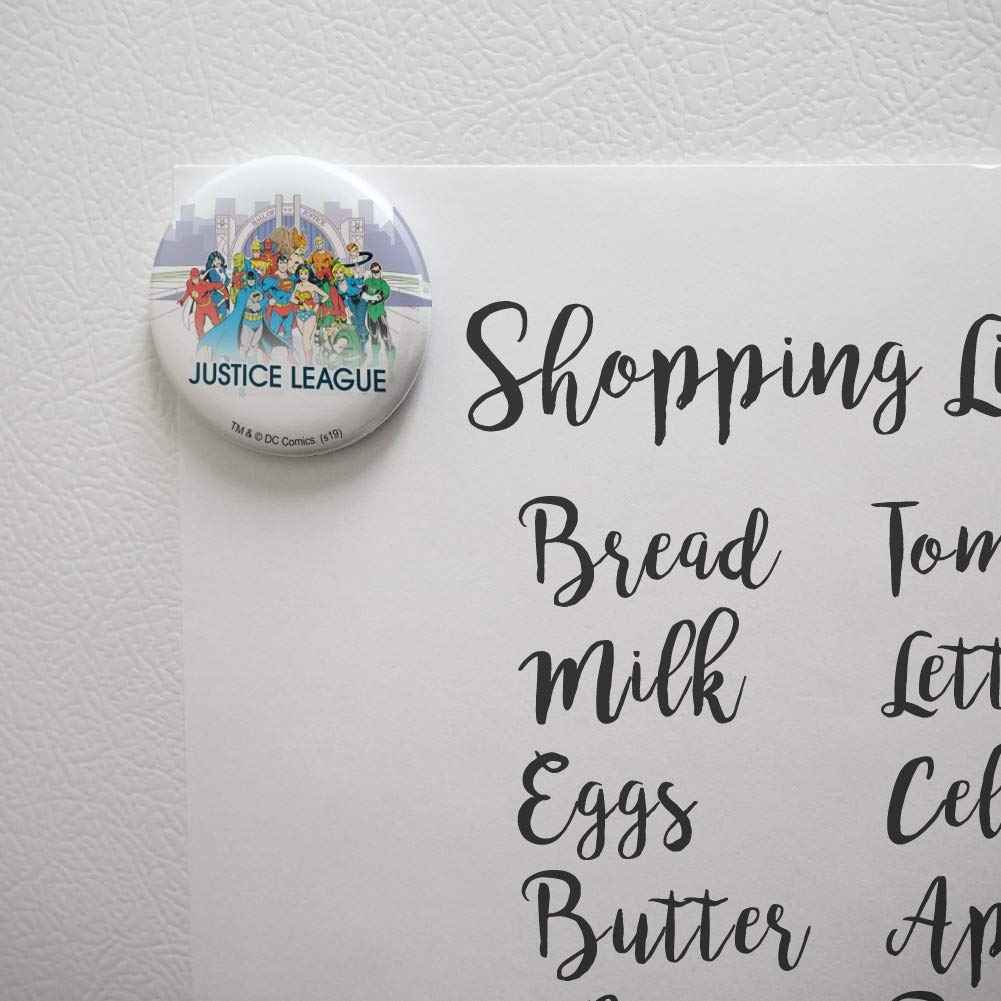 HALL OF JUSTICE
JUSTICE LEAGUE
TM & © DC Comics. (s19)
Shopping Li
Bread Tom
Milk Lett
Eggs Cel
Butter Ap